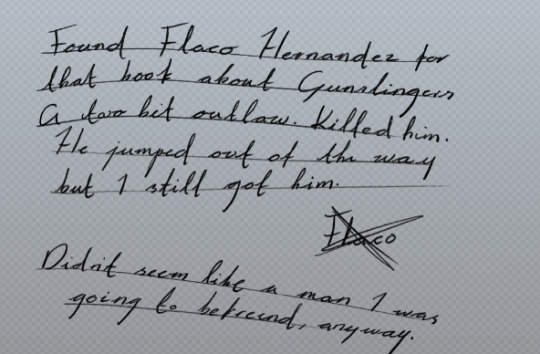 Found Flaco Hernandez for
that book about Gunslingers
A two bit outlaw. Killed him.
He jumped out of the way
but I still got him.
Flaco
Didn't seem like a man I was
going to befreind, anyway.